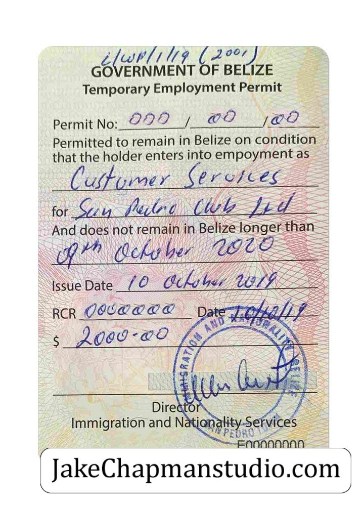 i/WP/1/19 (2001)
GOVERNMENT OF BELIZE
Temporary Employment Permit
Permit No: 000 / 00 / 00
Permitted to remain in Belize on condition
that the holder enters into empoyment as
Customer Services
for San Pedro Club Ltd
And does not remain in Belize longer than
09th October 2020
Issue Date 10 October 2019
RCR 0000000 Date 10/10/19
$ 2000-00
IMMIGRATION AND NATIONALITY
BELIZE
SAN PEDRO TOWN
Director
Immigration and Nationality Services
E00000000
JakeChapmanstudio.com